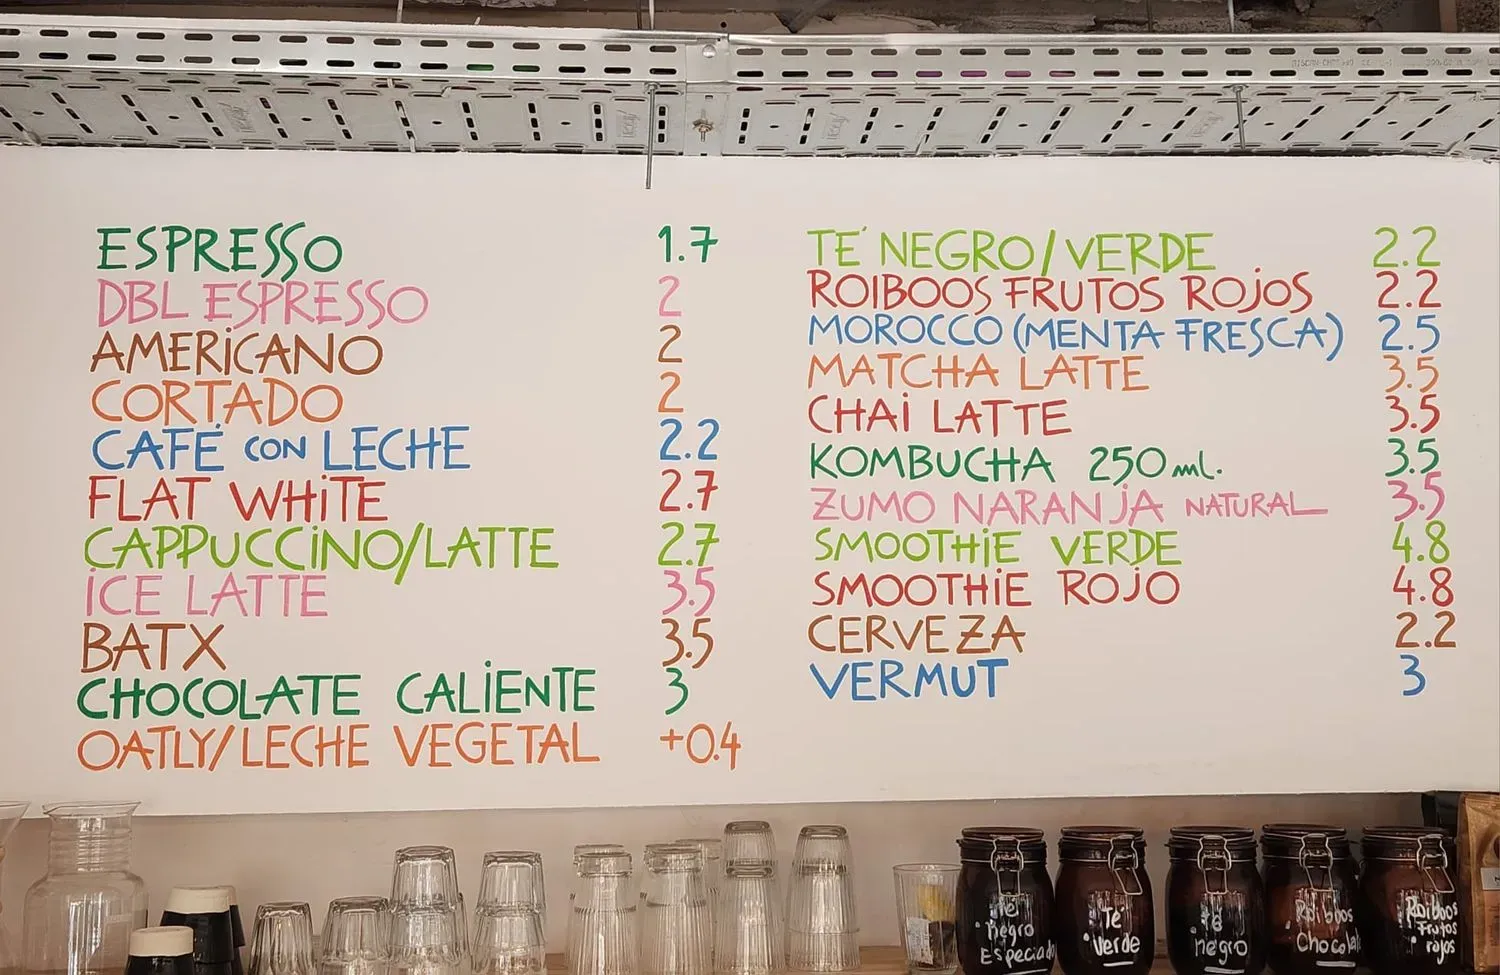 ESPRESSO 1.7
DBL ESPRESSO 2
AMERiCANO 2
CORTADO 2
CAFÉ CON LECHE 2.2
FLAT WHiTE 2.7
CAPPUCCiNO/LATTE 2.7
iCE LATTE 3.5
BATX 3.5
CHOCOLATE CALiENTE 3
OATLY/LECHE VEGETAL +0.4
TÉ NEGRO/VERDE 2.2
ROIBOOS FRUTOS ROJOS 2.2
MOROCCO (MENTA FRESCA) 2.5
MATCHA LATTE 3.5
CHAi LATTE 3.5
KOMBUCHA 250 ml. 3.5
ZUMO NARANJA NATURAL 3.5
SMOOTHiE VERDE 4.8
SMOOTHiE ROJO 4.8
CERVEZA 2.2
VERMUT 3
Té
negro
Especiado
Té
Verde
Té
negro
Roiboos
Chocolate
Roiboos
Frutos
rojos